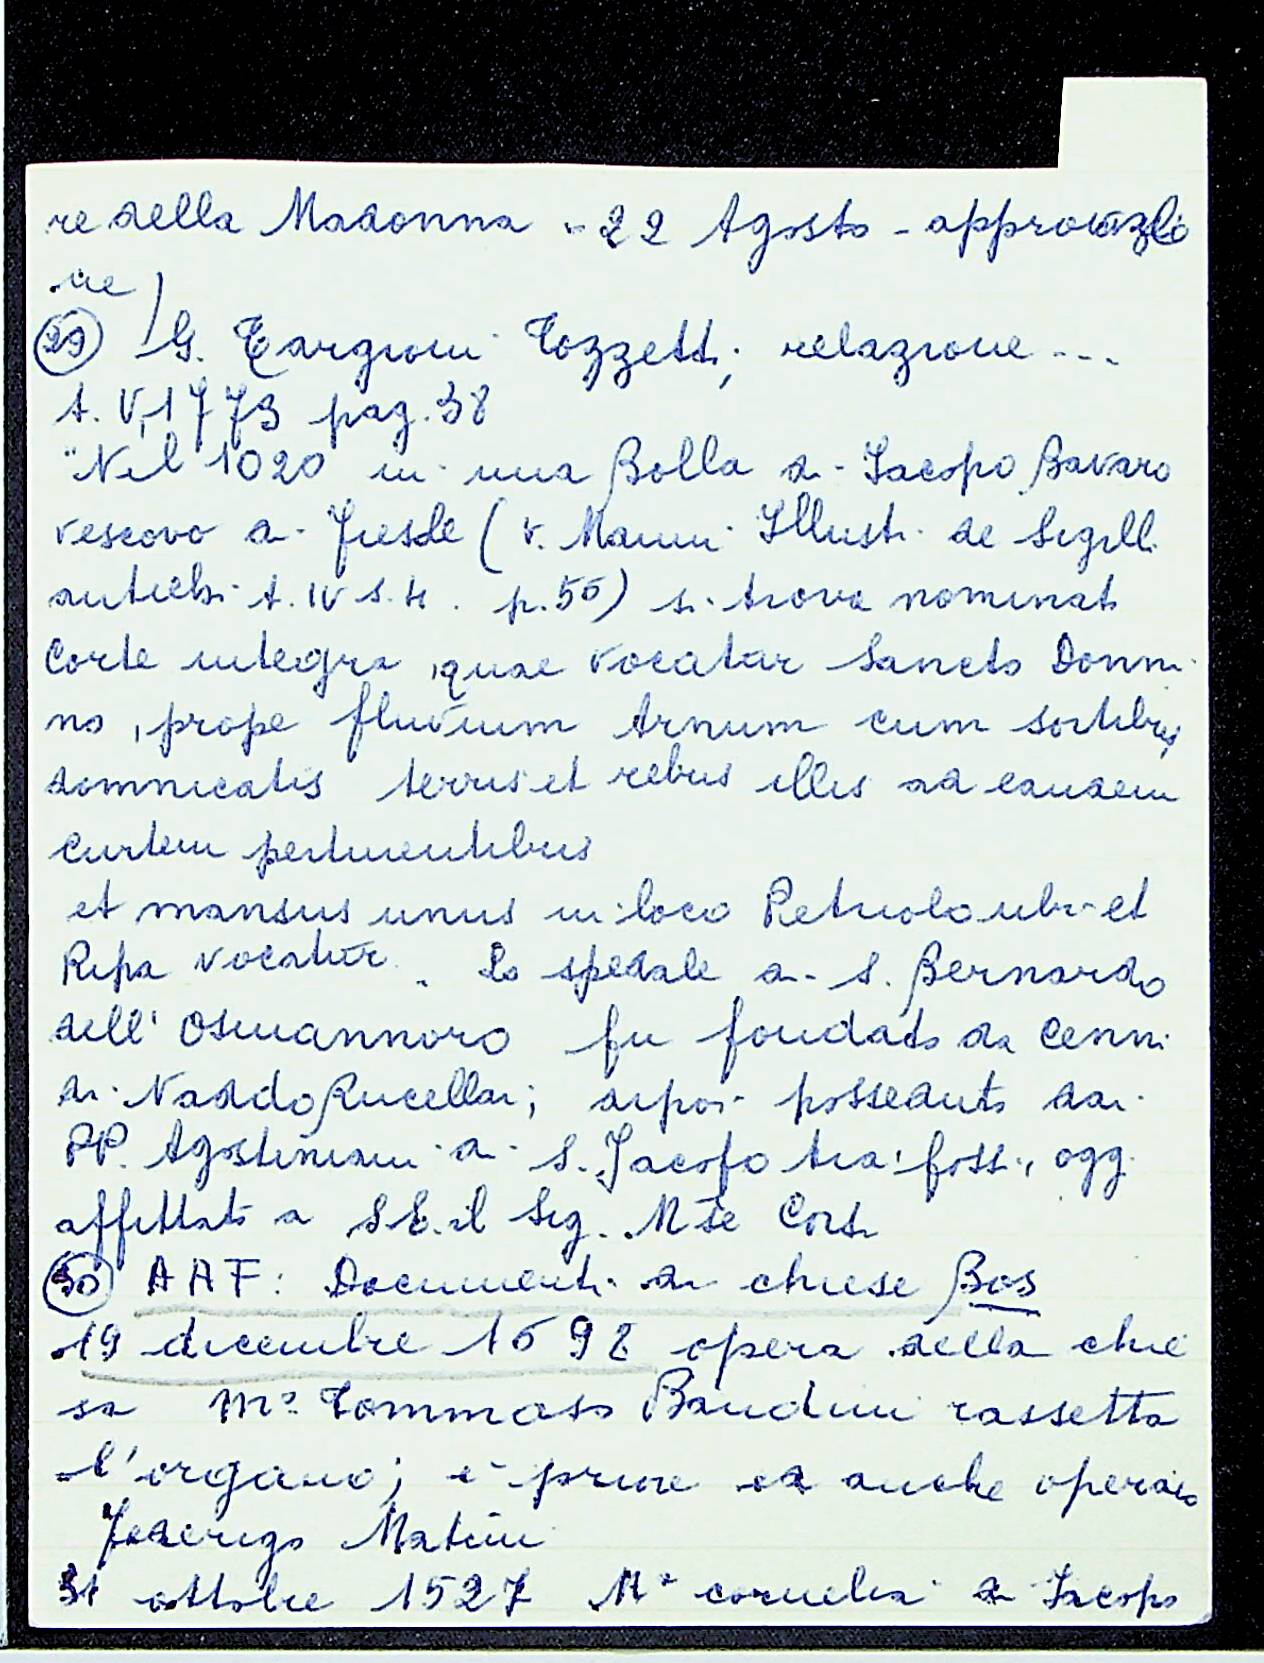 re della Madonna - 22 Agosto - approvazio
ne)
(29) G. Targioni Tozzetti, relazione ...
t. V, 1773 pag. 38
"Nel 1020 in una Bolla di Jacopo Bavaro
vescovo di Fiesole (v. Manni Illustr. de Sigilli
antichi t. IV s. 4. p. 50) si trova nominat
Corte integra, quae vocatar Sancto Donni
no, prope fluvium Arnum cum sortibus
domnicatis terris et rebus illis ad eandem
curtem pertinentibus
et mansus unus in loco Petriolo ubi et
Ripa vocatur. Lo spedale di S. Bernardo
dell' Osmannoro fu fondato da Cenni
di Naddo Rucellai; dipoi posseduto dai
PP. Agostiniani di S. Jacopo tra i fossi, oggi
affittato a S.E. il Sig. M.se Corsi
(30) AAF: Documenti di chiese Bos
19 dicembre 1692 opera della chie
sa M.o Tommaso Bandini rassetta
l'organo; è priore ed anche operaio
Federigo Matini
31 ottobre 1527 M.o cornelia di Jacopo